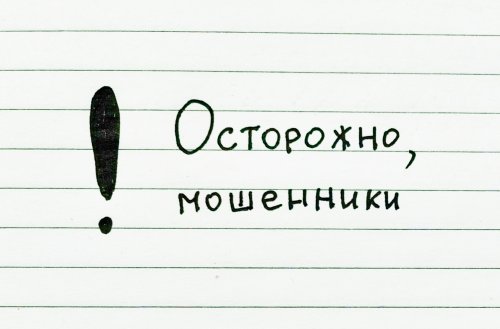 ! Осторожно,
мошенники